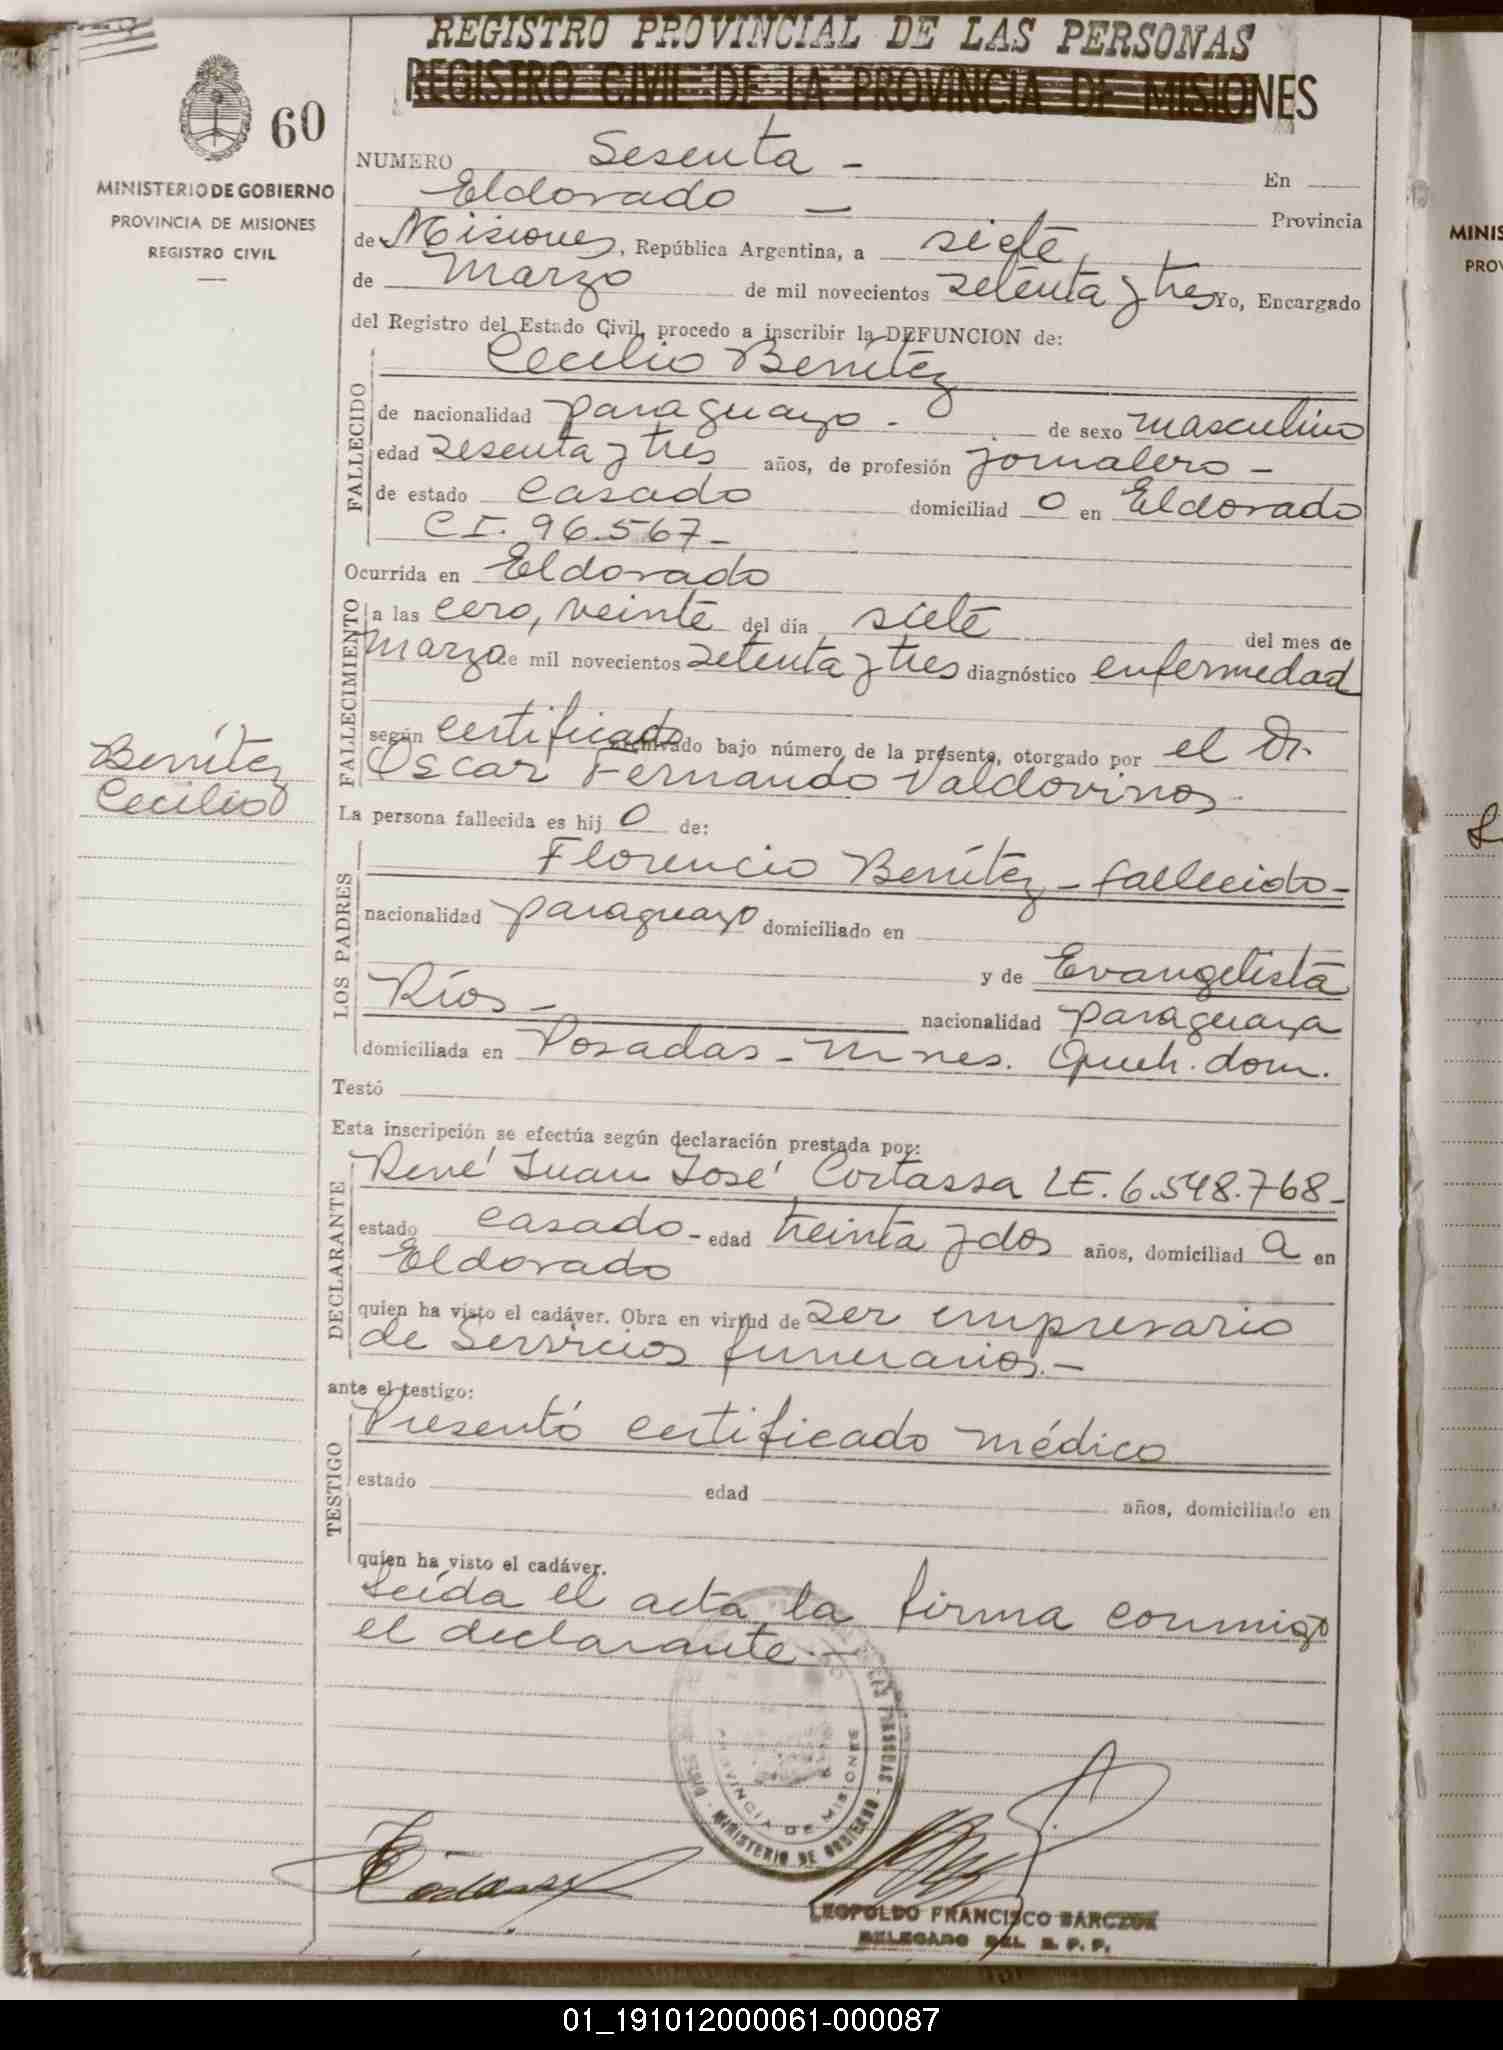 REGISTRO PROVINCIAL DE LAS PERSONAS
REGISTRO CIVIL DE LA PROVINCIA DE MISIONES
60
MINISTERIO DE GOBIERNO
PROVINCIA DE MISIONES
REGISTRO CIVIL
NUMERO Sesenta - En
Eldorado - Provincia
de Misiones, República Argentina, a siete
de marzo de mil novecientos setenta y tres Yo, Encargado
del Registro del Estado Civil, procedo a inscribir la DEFUNCION de:
Cecilio Benítez
FALLECIDO
de nacionalidad paraguayo - de sexo masculino
edad sesenta y tres años, de profesión jornalero -
de estado casado domiciliad o en Eldorado
CI. 96.567-
Ocurrida en Eldorado
FALLECIMIENTO
a las cero, veinte del día siete del mes de
marzo de mil novecientos setenta y tres diagnóstico enfermedad
según certificado archivado bajo número, de la presente, otorgado por el Dr.
Oscar Fernando Valdovinos -
Benítez
Cecilio
La persona fallecida es hij o de:
LOS PADRES
Florencio Benítez - fallecido -
nacionalidad paraguayo domiciliado en
y de Evangelista
Ríos - nacionalidad paraguaya
domiciliada en Posadas - Mnes. Queh. dom.
Testó
Esta inscripción se efectúa según declaración prestada por:
DECLARANTE
René Juan José Cortassa LE. 6.548.768-
estado casado - edad treinta y dos años, domiciliad a en
Eldorado
quien ha visto el cadáver. Obra en virtud de ser empresario
de servicios funerarios. -
ante el testigo:
TESTIGO
Presentó certificado médico
estado edad años, domiciliado en
quien ha visto el cadáver.
Leída el acta, la firma conmigo
el declarante. -
PROVINCIA DE MISIONES
MINISTERIO DE GOBIERNO
LEOPOLDO FRANCISCO BARCZUK
DELEGADO DEL R. P. P.
MINIS
PROV
01_191012000061-000087